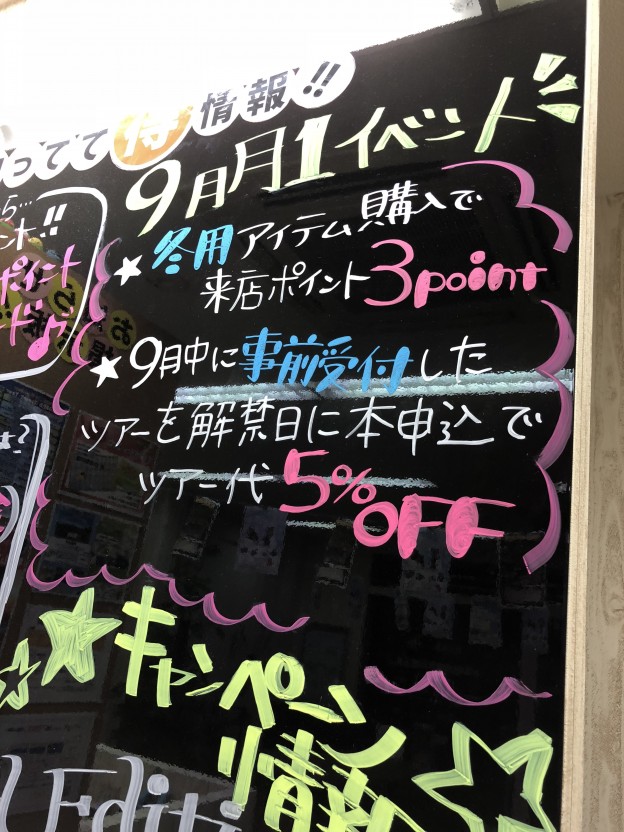 ってて得情報!!
9月月1イベント
ら…
ント!!
ポイント
ド♪
★冬用アイテム購入で
来店ポイント3point
★9月中に事前受付した
ツアーを解禁日に本申込で
ツアー代5%OFF
キャンペーン
情報
Editi